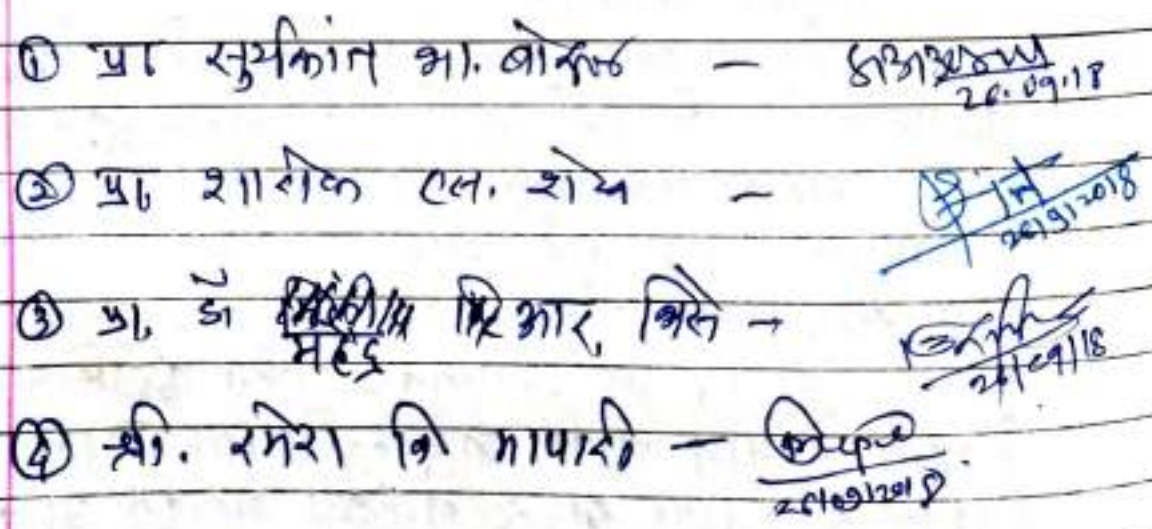 ① प्रा सुर्यकांत भा. - 26.09.18
② प्रा. एल. शेय - 26/9/2018
③ प्रा. डॉ महेंद्र आर. भिसे - 26/09/18
④ श्री. रमेश वि मापारी - 26/09/2018